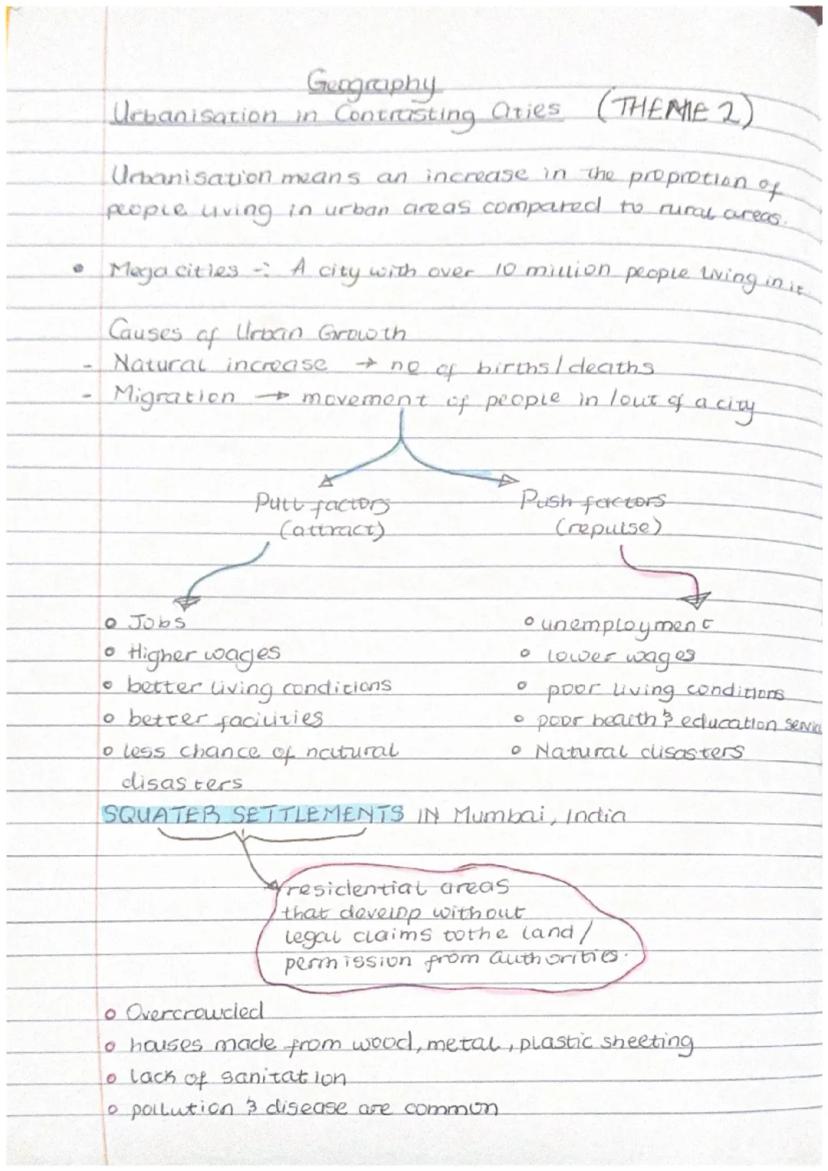 Geography
Urbanisation in Contrasting Cities (THEME 2)
Urbanisation means an increase in the proprotion of
people living in urban areas compared to rural areas.
• Mega cities -: A city with over 10 million people living in it
Causes of Urban Growth
- Natural increase → no of births/deaths
- Migration → movement of people in /out of a city
Pull factors
(attract)
Push factors
(repulse)
o Jobs
o Higher wages
o better living conditions
o better facilities
o less chance of natural
disasters
o unemployment
o lower wages
o poor living conditions
o poor health & education servic
o Natural disasters
SQUATER SETTLEMENTS IN Mumbai, India
residential areas
that develop without
legal claims to the land/
permission from authorities.
o Overcrowded
o houses made from wood, metal, plastic sheeting
o lack of sanitation
o pollution & disease are common